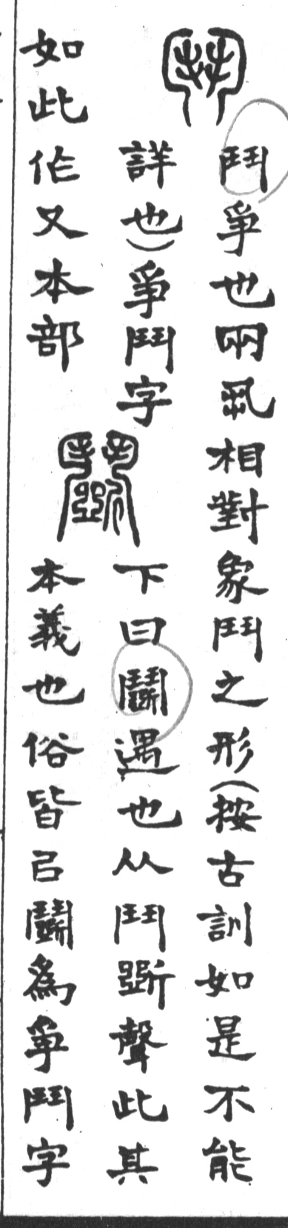 鬥
鬥爭也兩丮相對象鬥之形(按古訓如是不能
詳也)爭鬥字
如此作又本部
鬭
下曰鬭遇也从鬥斲聲此其
本義也俗皆㠯鬭爲爭鬥字